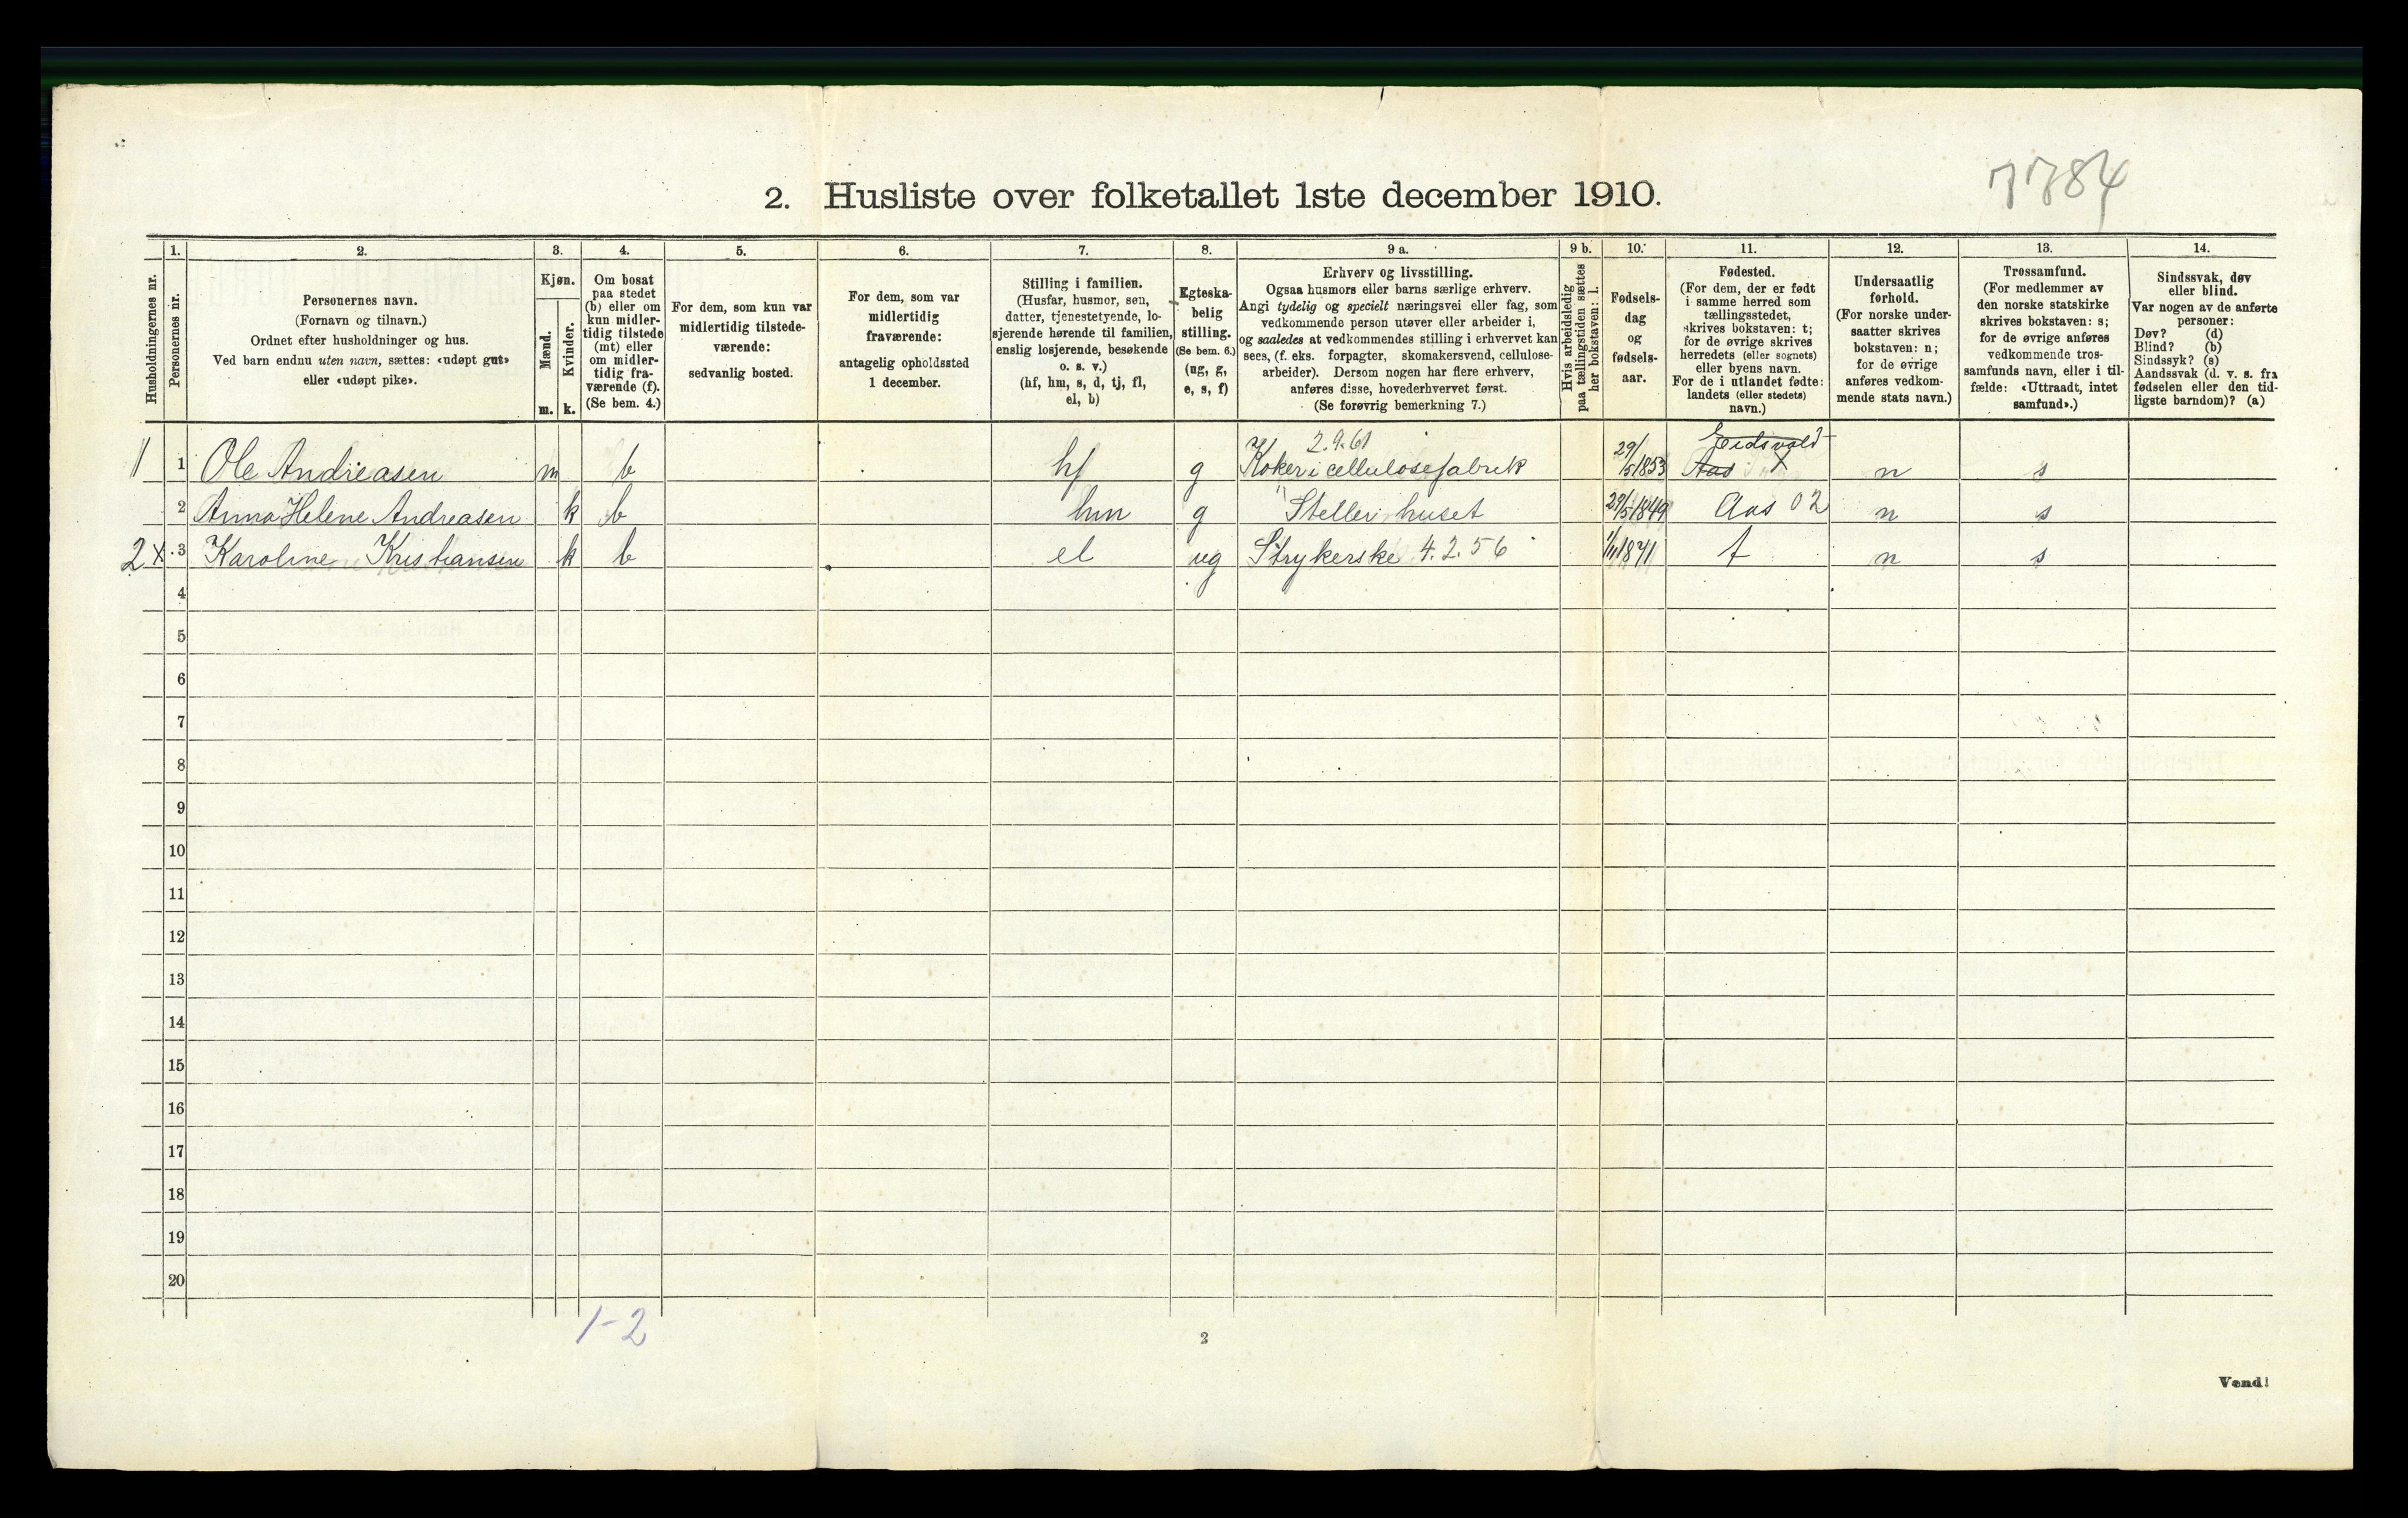 7784
2. Husliste over folketallet 1ste december 1910.
Husholdningernes nr.
1.
Personernes nr.
2.
Personernes navn.
(Fornavn og tilnavn.)
Ordnet efter husholdninger og hus.
Ved barn endnu uten navn, sættes: «udøpt gut»
eller «udøpt pike».
3.
Kjøn.
Mænd.
m.
Kvinder.
k.
4.
Om bosat
paa stedet
(b) eller om
kun midler-
tidig tilstede
(mt) eller
om midler-
tidig fra-
værende (f).
(Se bem. 4.)
5.
For dem, som kun var
midlertidig tilstede-
værende:
sedvanlig bosted.
6.
For dem, som var
midlertidig
fraværende:
antagelig opholdssted
1 december.
7.
Stilling i familien.
(Husfar, husmor, søn,
datter, tjenestetyende, lo-
sjerende hørende til familien,
enslig losjerende, besøkende
o. s. v.)
(hf, hm, s, d, tj, fl,
el, b)
8.
Egteska-
belig
stilling.
(Se bem. 6.)
(ug, g,
e, s, f)
9 a.
Erhverv og livsstilling.
Ogsaa husmors eller barns særlige erhverv.
Angi tydelig og specielt næringsvei eller fag, som
vedkommende person utøver eller arbeider i,
og saaledes at vedkommendes stilling i erhvervet kan
sees, (f. eks. forpagter, skomakersvend, cellulose-
arbeider). Dersom nogen har flere erhverv,
anføres disse, hovederhvervet først.
(Se forøvrig bemerkning 7.)
9 b.
Hvis arbeidsledig
paa tællingstiden sættes
her bokstaven: l.
10.
Fødsels-
dag
og
fødsels-
aar.
11.
Fødested.
(For dem, der er født
i samme herred som
tællingsstedet,
skrives bokstaven: t;
for de øvrige skrives
herredets (eller sognets)
eller byens navn.
For de i utlandet fødte:
landets (eller stedets)
navn.)
12.
Undersaatlig
forhold.
(For norske under-
saatter skrives
bokstaven: n;
for de øvrige
anføres vedkom-
mende stats navn.)
13.
Trossamfund.
(For medlemmer av
den norske statskirke
skrives bokstaven: s;
for de øvrige anføres
vedkommende tros-
samfunds navn, eller i til-
fælde: «Uttraadt, intet
samfund».)
14.
Sindssvak, døv
eller blind.
Var nogen av de anførte
personer:
Døv? (d)
Blind? (b)
Sindssyk? (s)
Aandssvak (d. v. s. fra
fødselen eller den tid-
ligste barndom)? (a)
2.9.61 Eidsvold
1 1 Ole Andreasen m b hf g Koker i cellulosefabrik 29/5 1853 Aas X n s
2 Anna Helene Andreasen k b hm g Steller huset 29/5 1849 Aas 02 n s
2 x 3 Karoline Kristiansen k b el ug Strykerske 4.2.56 1/11 1871 t n s
4
5
6
7
8
9
10
11
12
13
14
15
16
17
18
19
20
1-2
2
Vend!